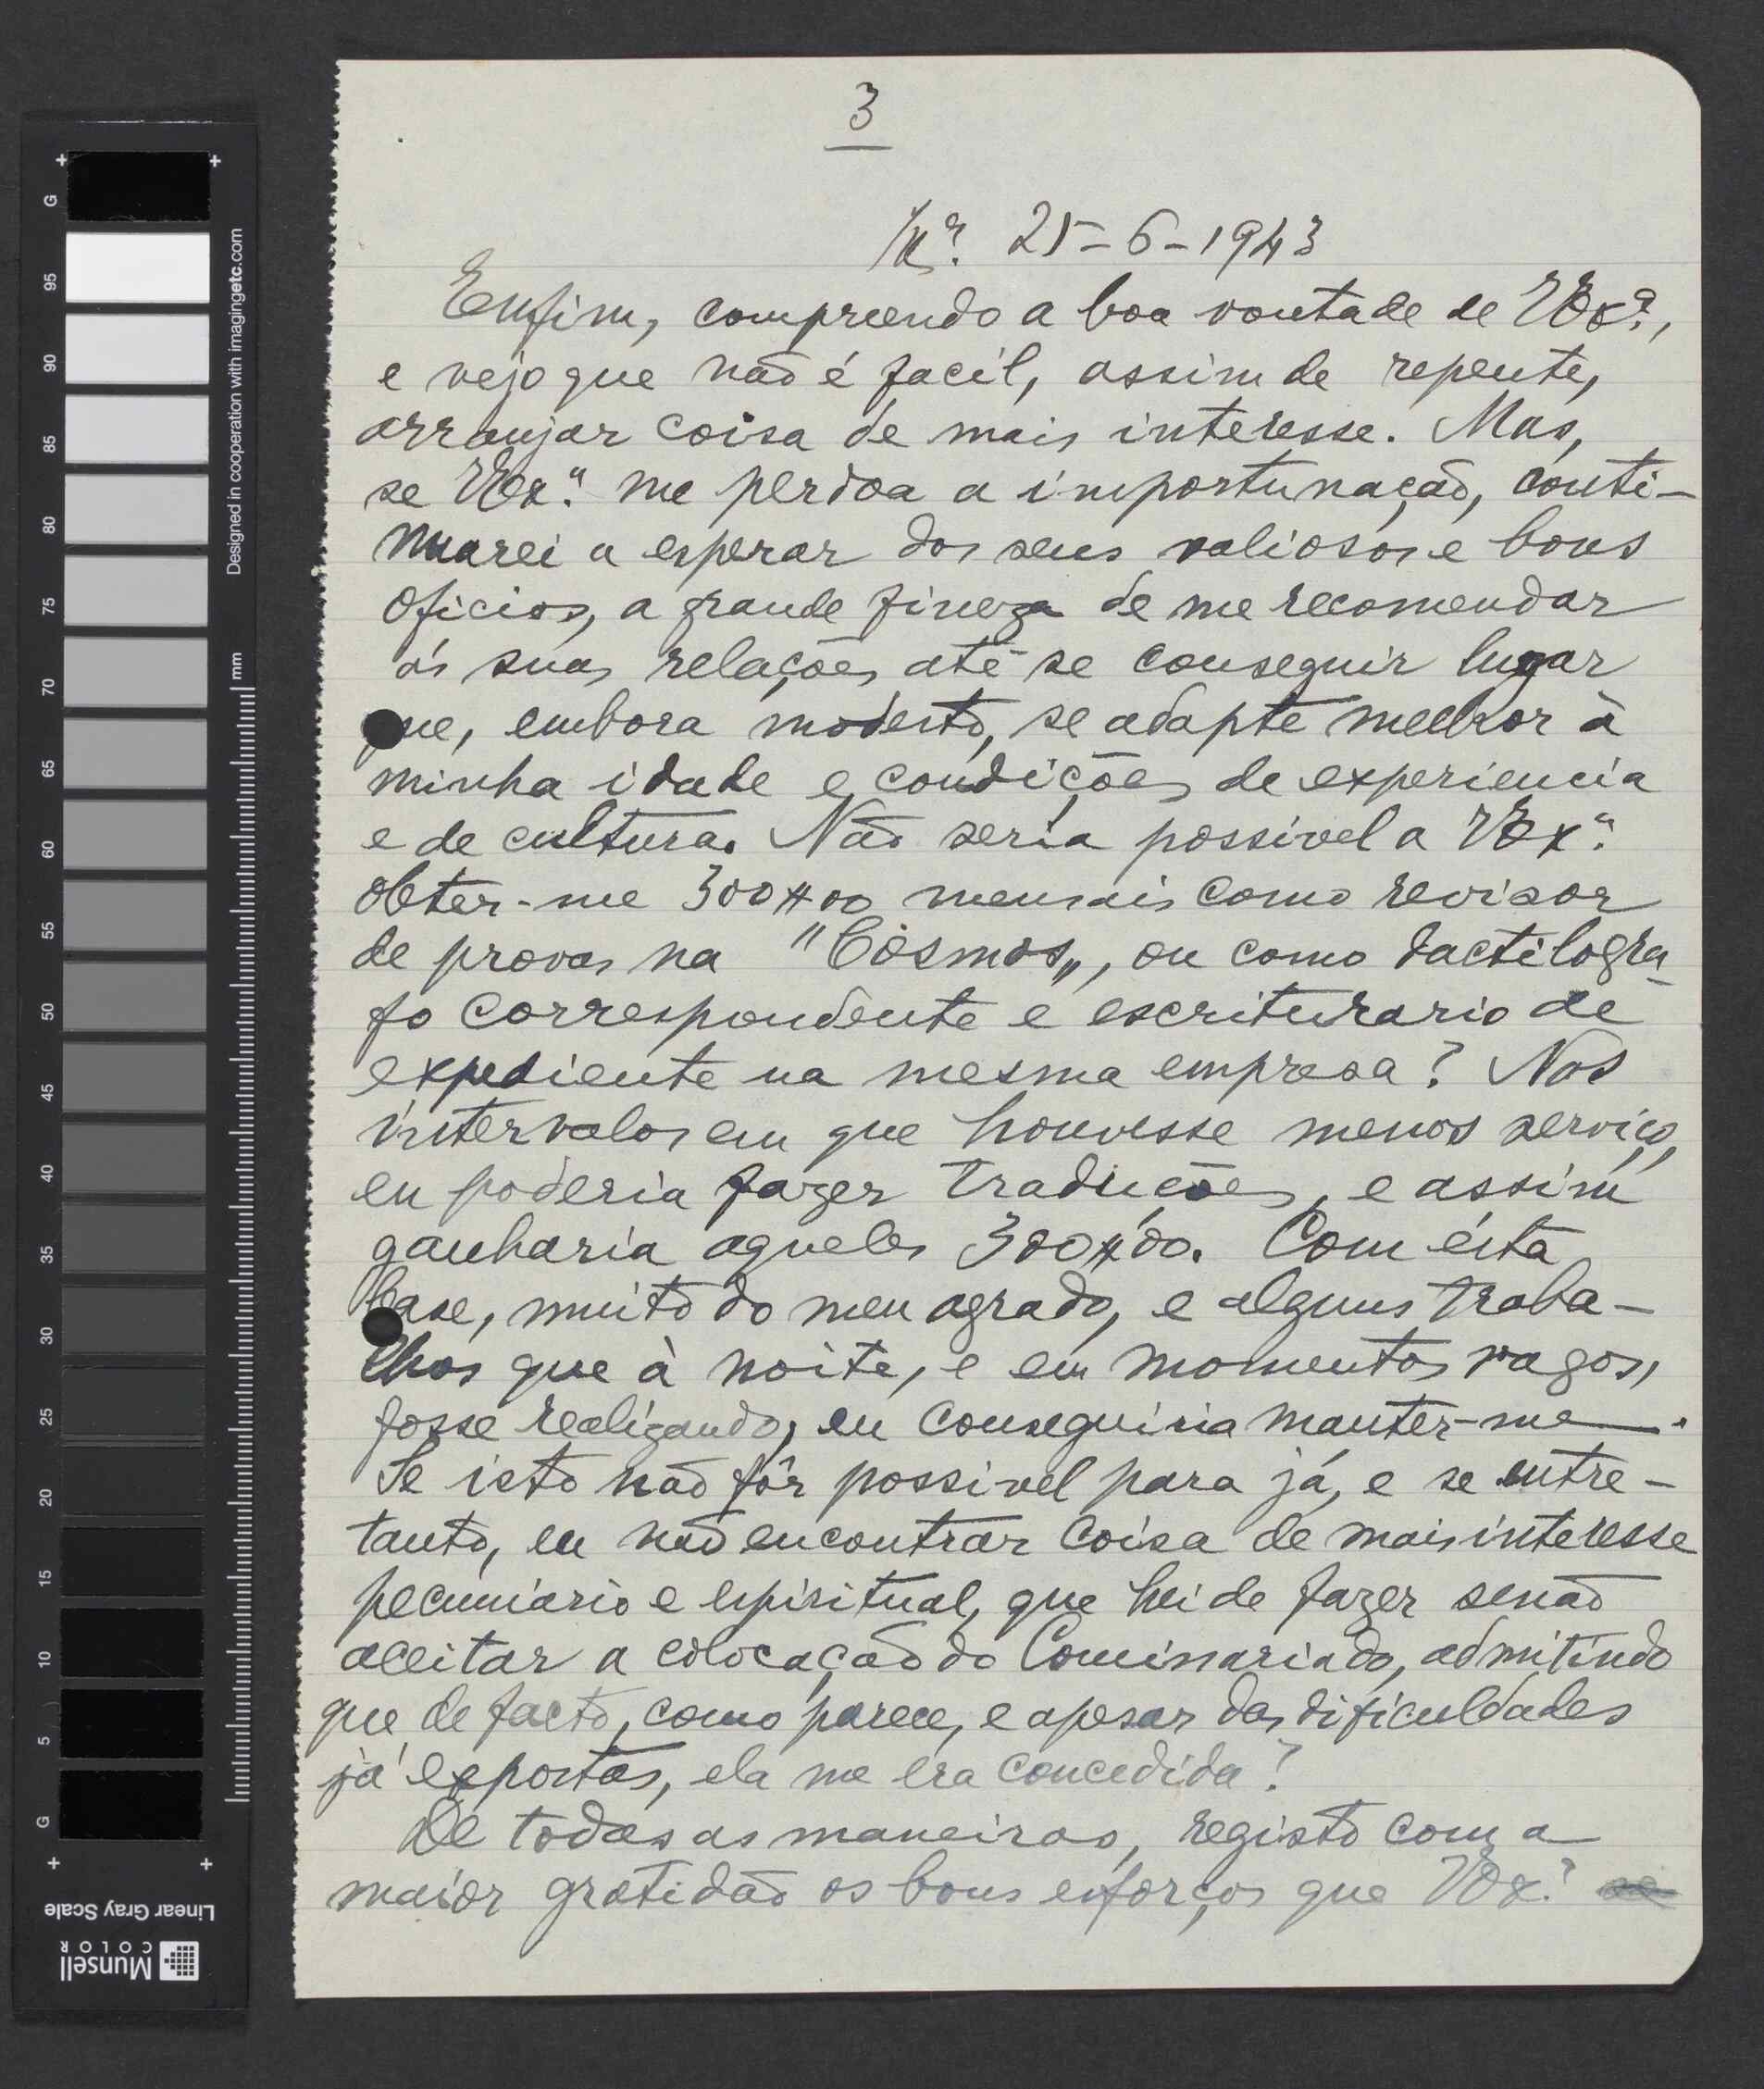 3
25-6-1943
Enfim, compreendo a boa vontade de VEx.ª,
e vejo que não é facil, assim de repente,
arranjar coisa de mais interesse. Mas,
se VEx.ª me perdoa a importunação, conti-
nuarei a esperar dos seus valiosos e bons
oficios, a grande fineza de me recomendar
ás suas relações até se conseguir lugar
que, embora modesto, se adapte melhor à
minha idade e condições de experiencia
e de cultura. Não seria possivel a VEx.ª
obter-me 300$00 mensais como revisor
de provas na "Cósmos", ou como dactilogra-
fo correspondente e escriturario de
expediente na mesma empresa? Nos
intervalos em que houvesse menos serviço,
eu poderia fazer traduções, e assim
ganharia aqueles 300$00. Com ésta
base, muito do meu agrado, e alguns traba-
lhos que à noite, e em momentos vagos,
fosse realizando, eu conseguiria manter-me.
Se isto não fôr possivel para já, e se entre-
tanto, eu não encontrar coisa de mais interesse
pecuniário e espiritual, que hei de fazer senão
aceitar a colocação do Comissariado, admitindo
que de facto, como parece, e apesar das dificuldades
já expostas, ela me era concedida?
De todas as maneiras, registo com a
maior gratidão os bons esforços que VEx.ª
Designed in cooperation with imagingetc.com
mm
G
95
90
85
80
75
70
65
60
55
50
45
40
35
30
25
20
15
10
5
G
Linear Gray Scale
Munsell
COLOR